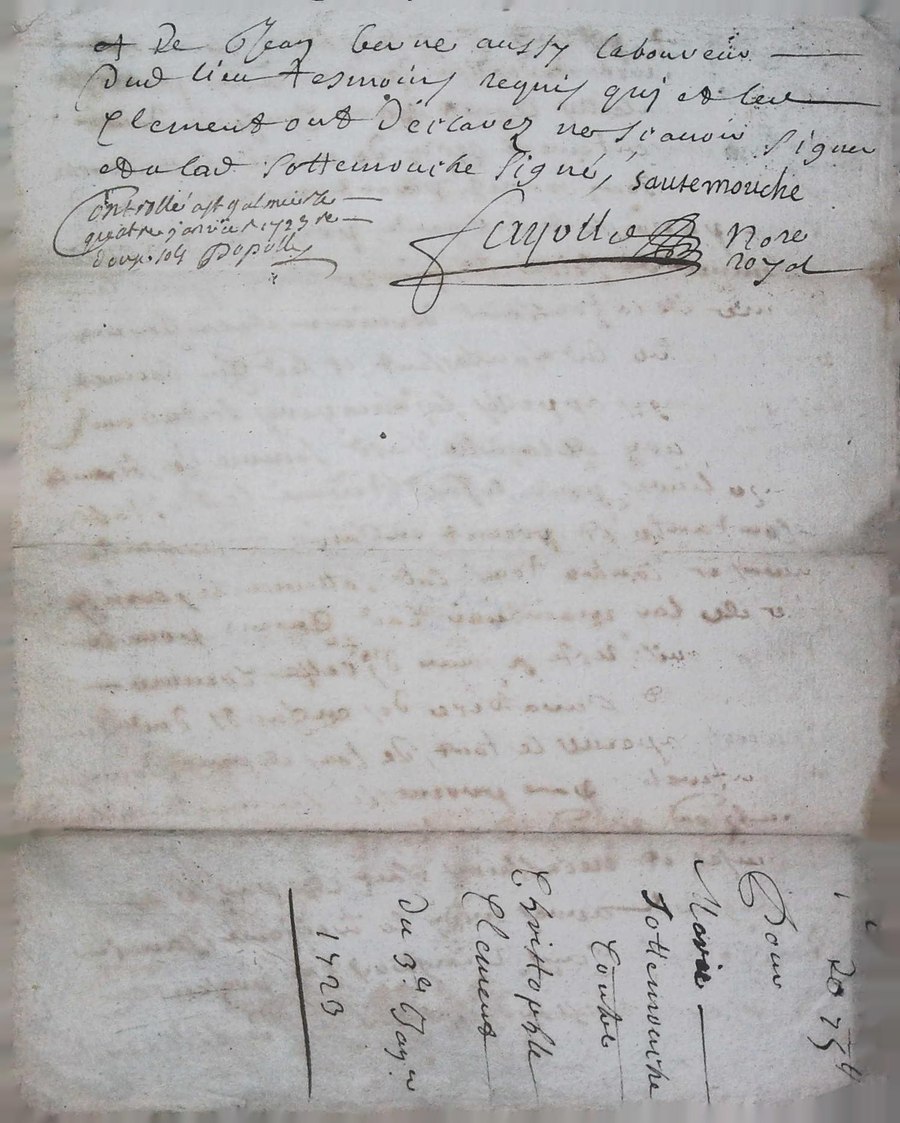 et de Jean berne aussy laboureur
dud lieu tesmoins requis quj et led
Clement ont déclarez ne scavoir signer
et la lad sottemouche signé, sautemouche
Controllé a st galmier le
quatre janvier 1723 re
douze sols
fayolle Nore
royal
Pour
Marie
Sottemouche
Contre
Christophle
Clement
du 3e Janr
1723